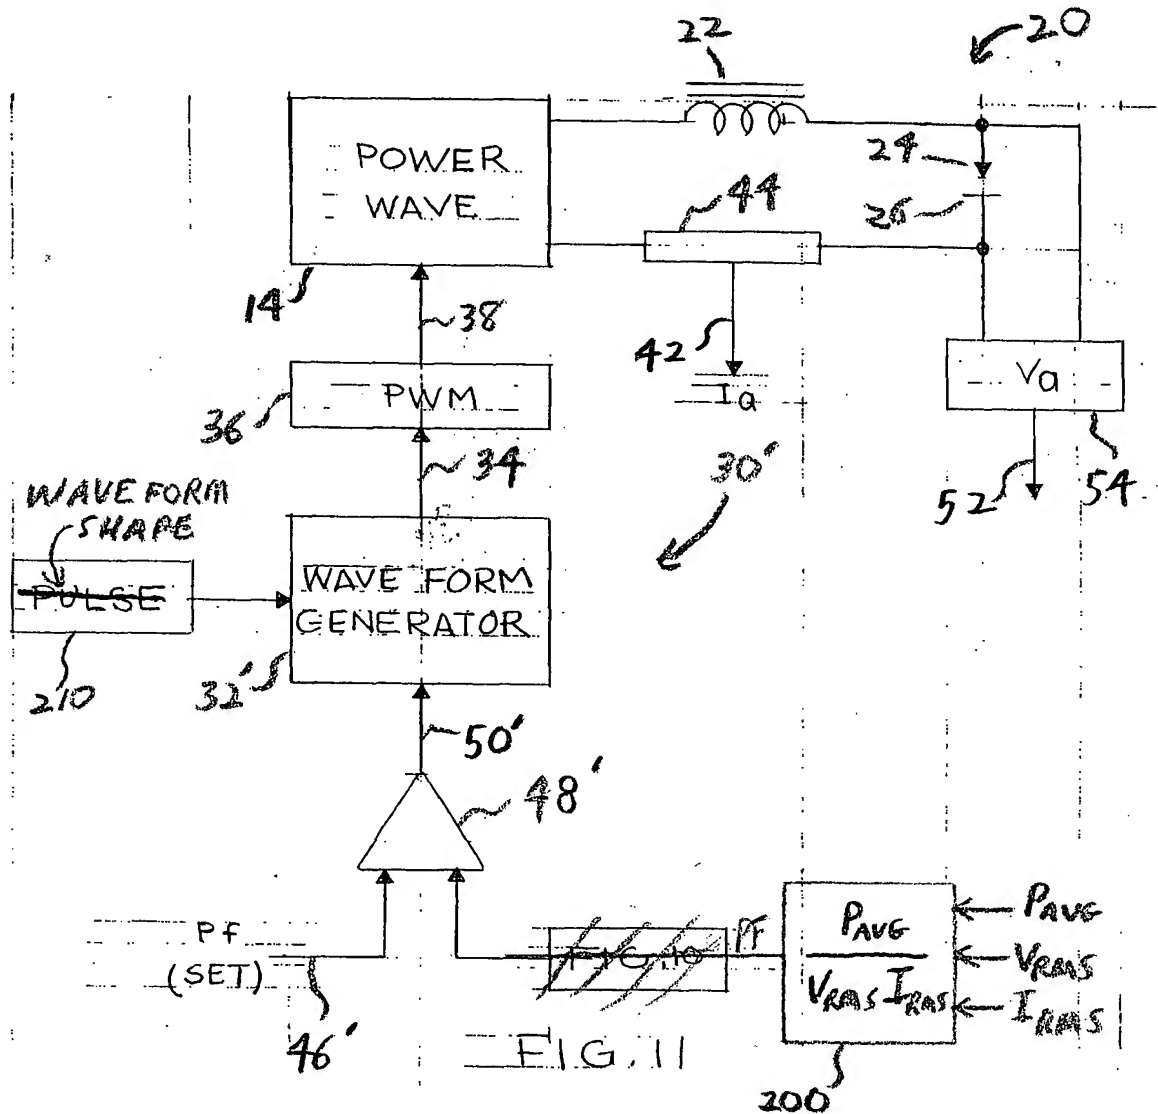 22
20
POWER
WAVE
24
26
44
14
38
42
Ia
Va
36
PWM
34
30'
52
54
WAVE FORM
SHAPE
PULSE
WAVE FORM
GENERATOR
210
32'
50'
48'
Pf
(SET)
46'
FIG. 10
PF
PAVG
VRMS IRMS
PAVG
VRMS
IRMS
200
FIG. 11